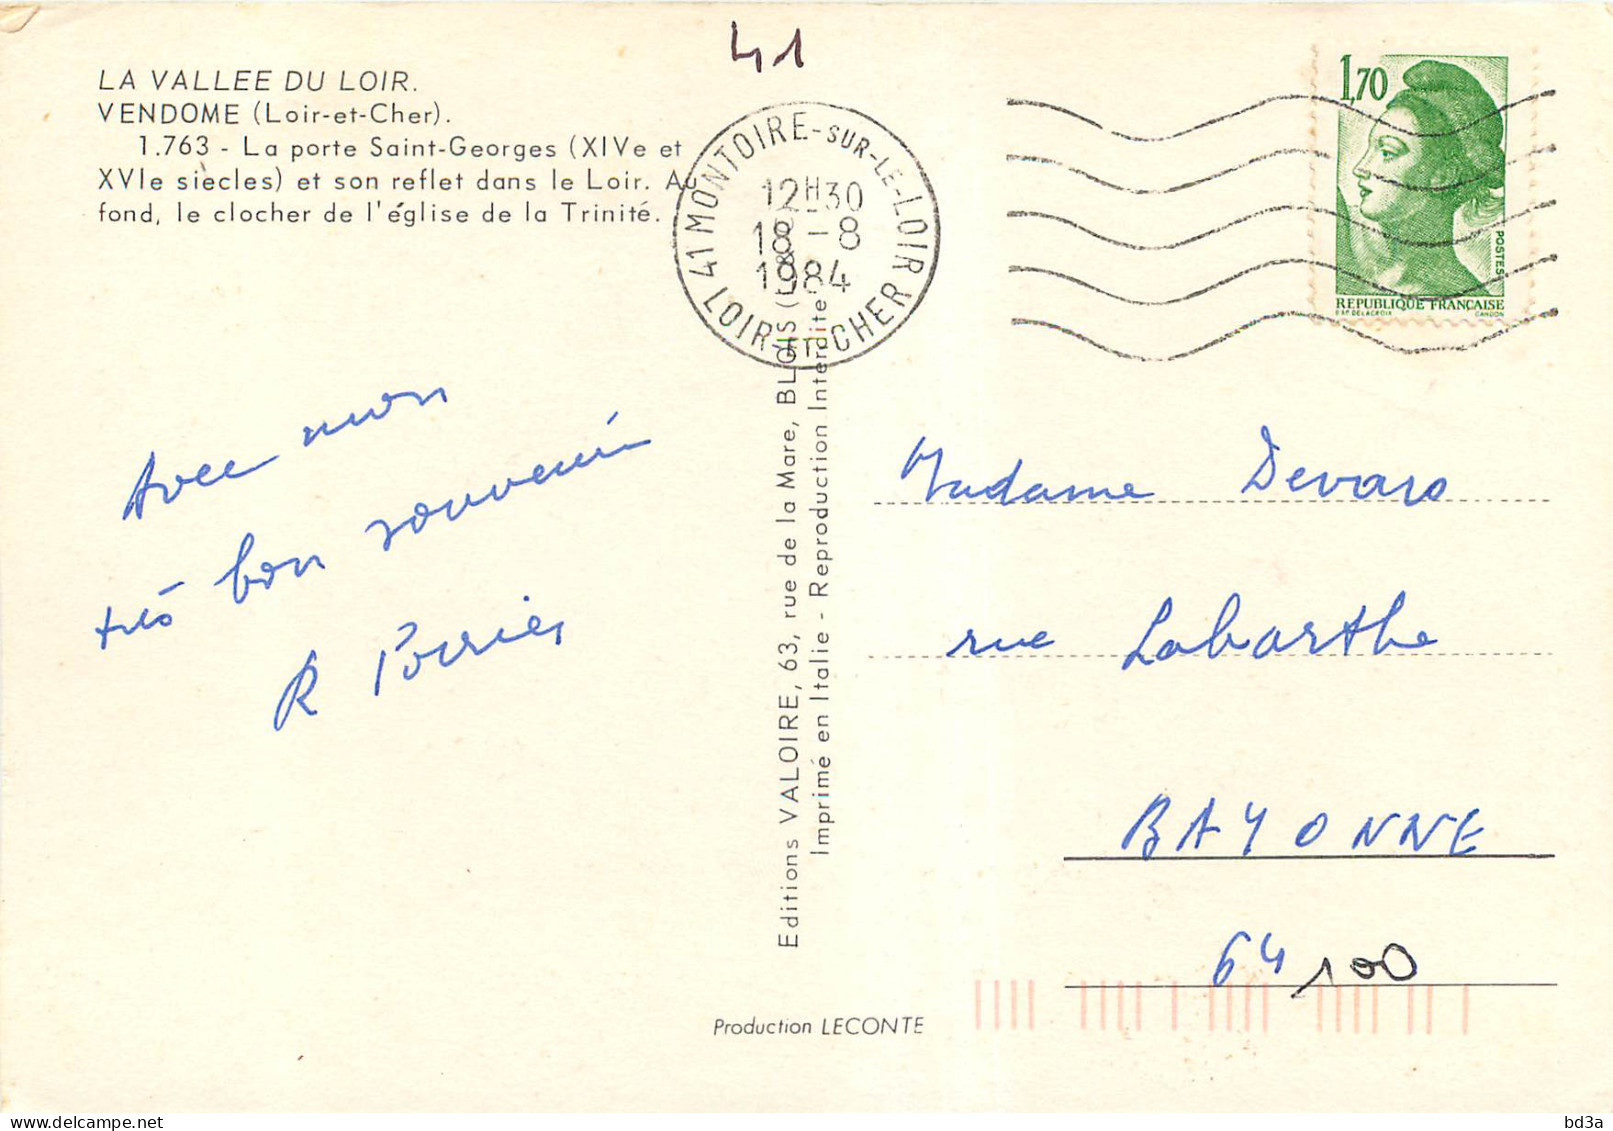 41
LA VALLEE DU LOIR.
VENDOME (Loir-et-Cher).
1.763 - La porte Saint-Georges (XIVe et
XVIe siècles) et son reflet dans le Loir. Au
fond, le clocher de l'église de la Trinité.
41 MONTOIRE-SUR-LE-LOIR
LOIR-ET-CHER
12H30
18-8
1984
1,70
POSTES
REPUBLIQUE FRANÇAISE
D'AP. DELACROIX GANDON
Avec mon
très bon souvenir
R Poirier
Editions VALOIRE, 63, rue de la Mare, BLOIS
Imprimé en Italie - Reproduction Interdite
Madame Devars
rue Labarthe
BAYONNE
64 100
Production LECONTE
bd3a